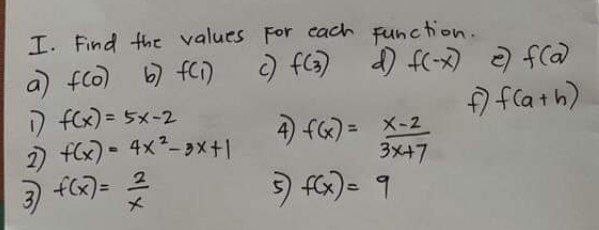 I. Find the values for each function.
a) f(0) b) f(1) c) f(3) d) f(-x) e) f(a)
f) f(a+h)
1) f(x) = 5x-2
2) f(x) = 4x²-3x+1
3) f(x) = 2/x
4) f(x) = x-2/3x+7
5) f(x) = 9